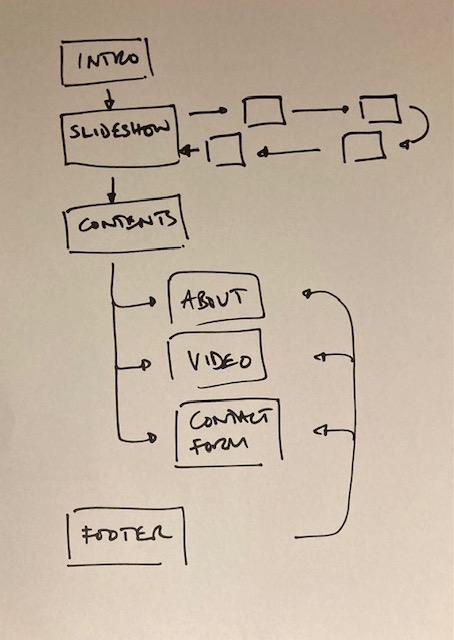 INTRO
SLIDESHOW
CONTENTS
ABOUT
VIDEO
CONTACT
FORM
FOOTER